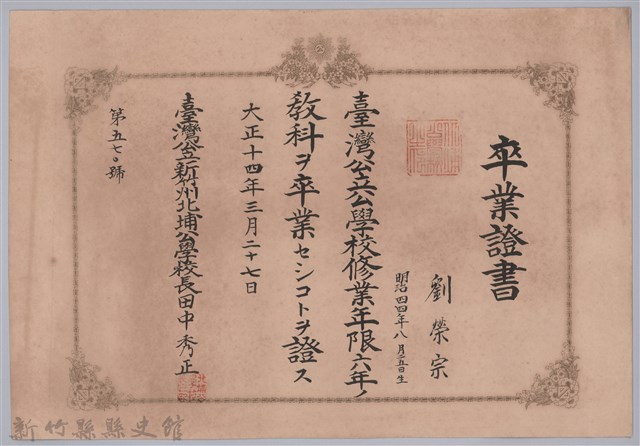 卒業證書
劉榮宗
明治四四年八月五日生
臺灣公立公學校修業年限六年ノ
教科ヲ卒業セシコトヲ證ス
大正十四年三月二十七日
臺灣公立新竹州北埔公學校長田中秀正
第五七〇號
新竹縣縣史館